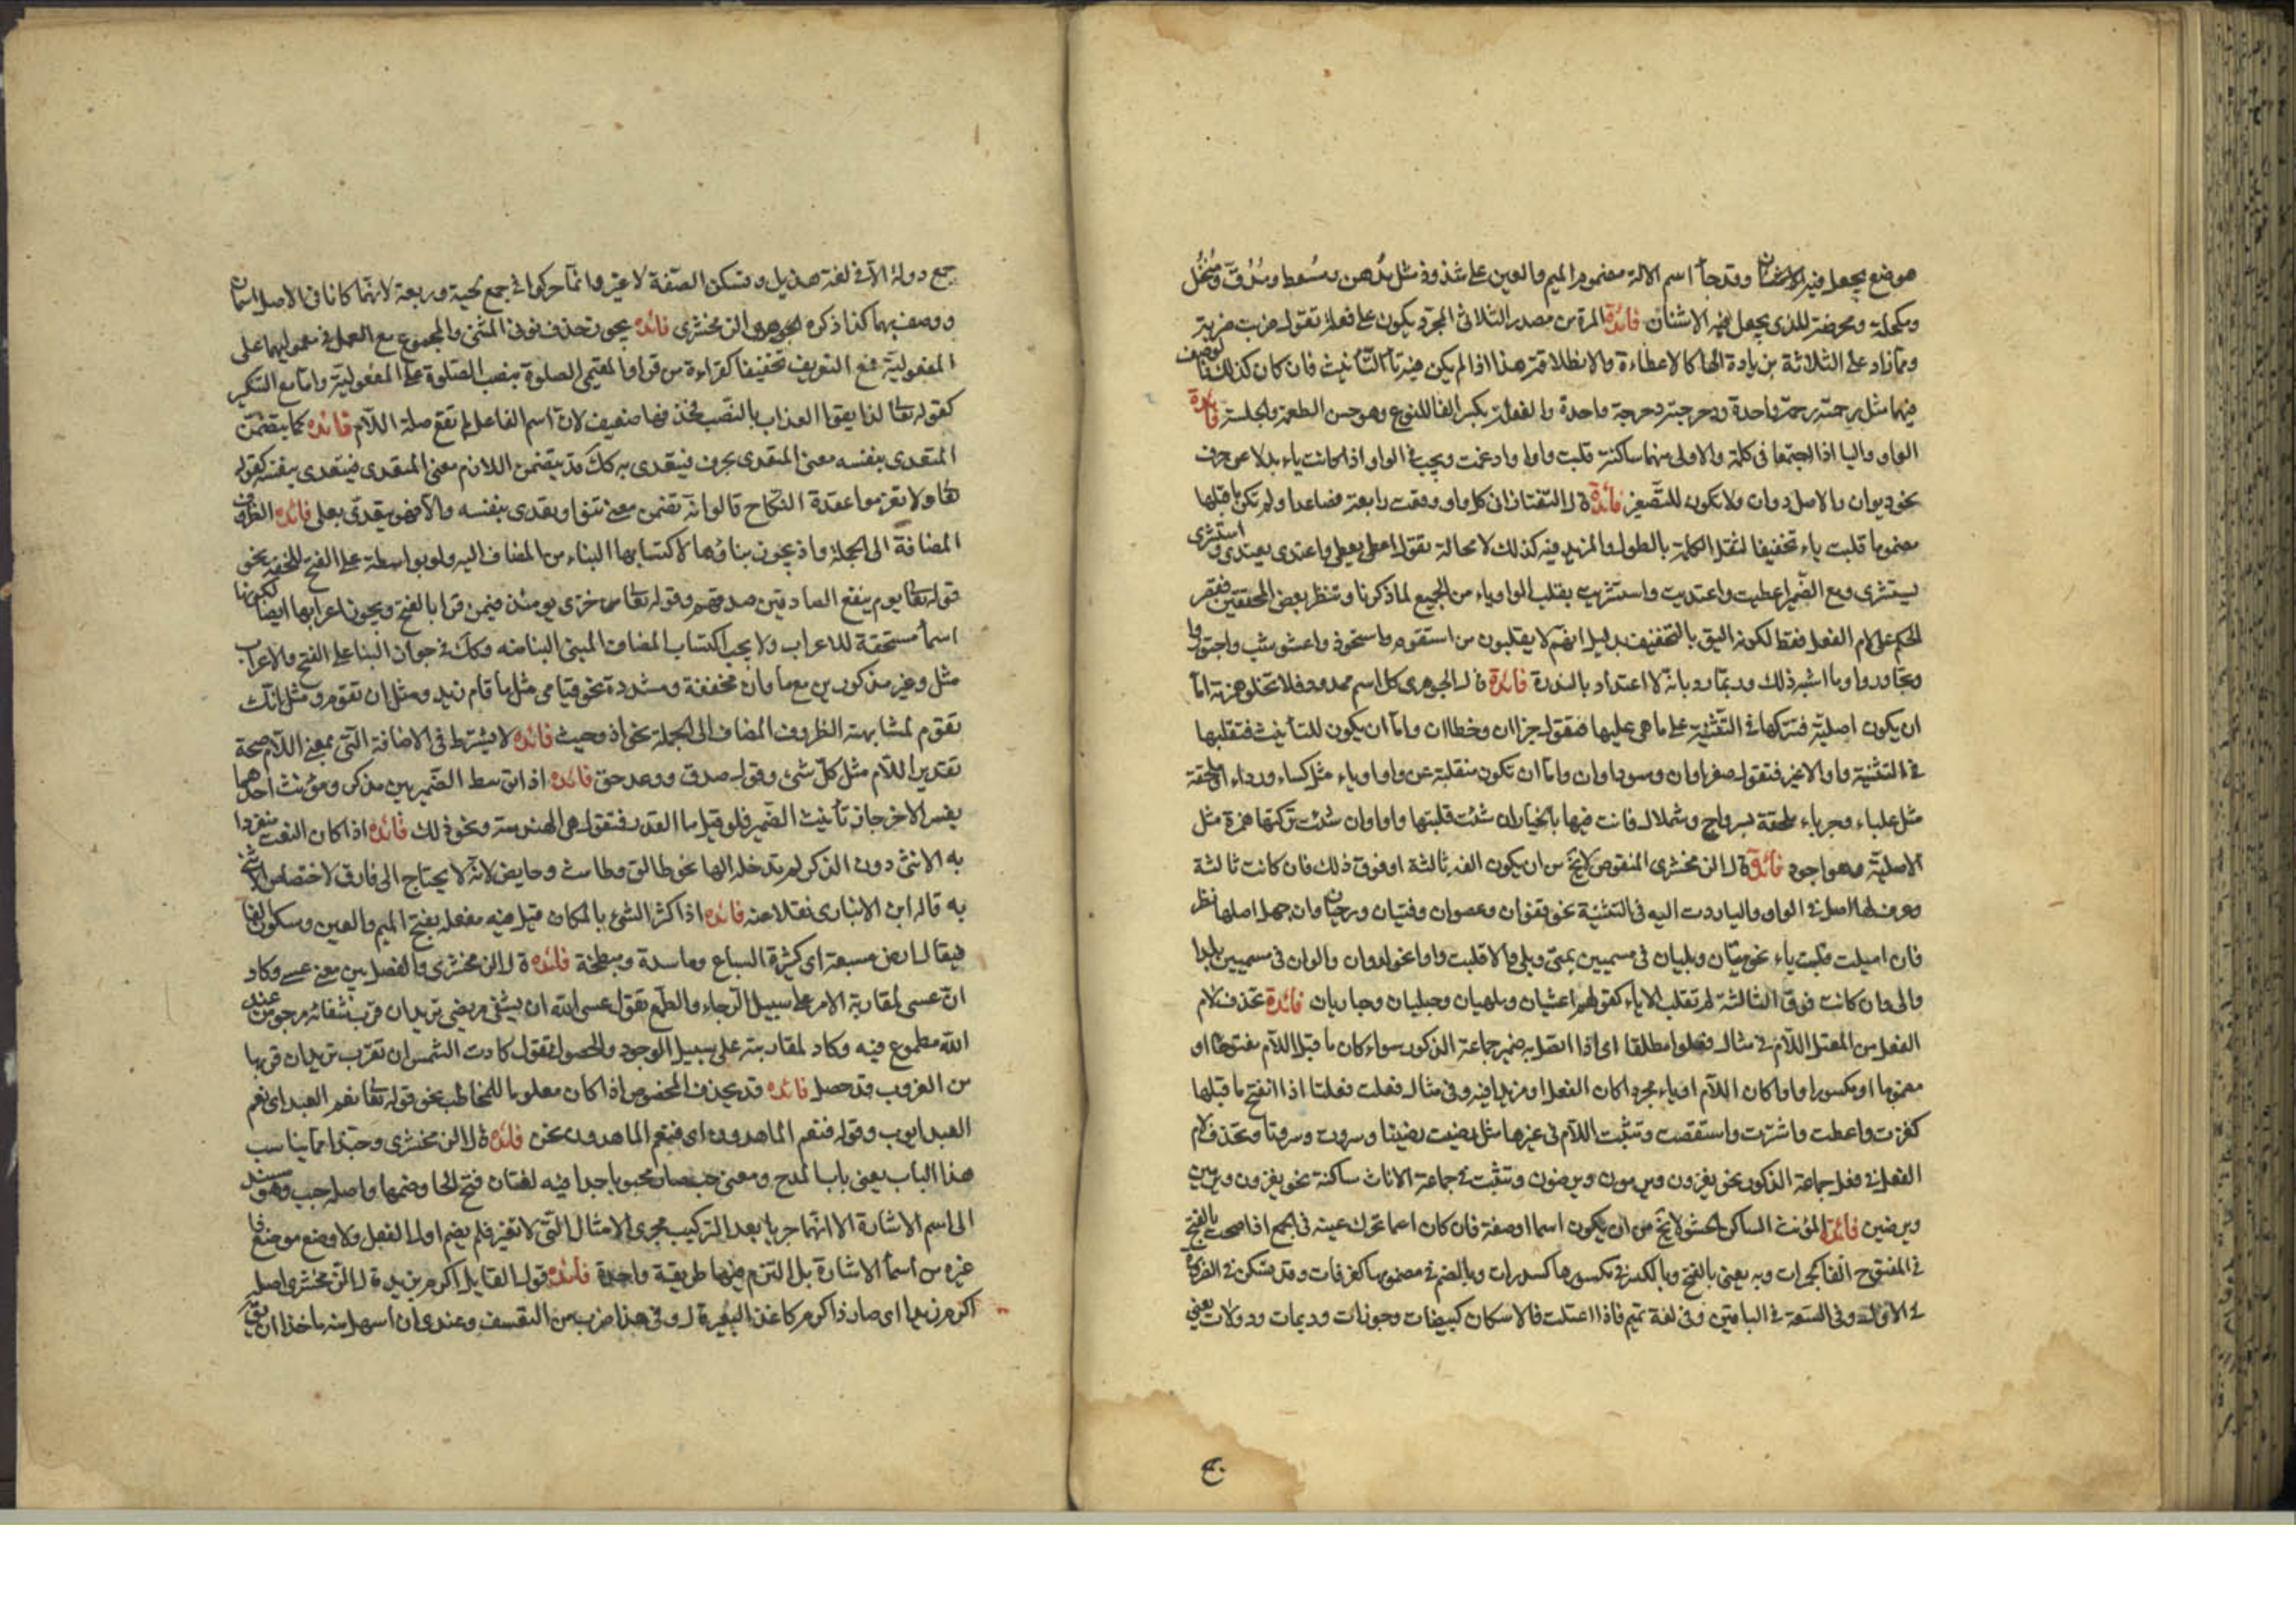 موضع يجعل فيه الاشنان وقد جاء اسم الالة مضموم الميم والعين على شذوذ مثل مدهن ومسعط ومدق ومنخل
ومكحلة ومحرضة للذى يجعل فيه الاشنان فائدة المرة من مصدر الثلاثى المجرد يكون على فعلة تقول ضربت ضربة
ومما زاد على الثلاثة بزيادة الها كالاعطاءة والانطلاقة هذا اذا لم يكن فيه تاء التأنيث فان كان كذلك فالوصف
فيهما مثل رحمته رحمة واحدة ودحرجته دحرجة واحدة والفعلة بكسر الفا للنوع وهو حسن الطعمة والجلسة فائدة
الواو واليا اذا اجتمعا فى كلمة والاولى منهما ساكنة قلبت واوا وادغمت ويجب فى الواو اذا كانت ياء بدلا عن حرف
نحو ديوان والاصل دوان ولا تكون للتصغير فائدة قال التفتازانى كل واو وقعت رابعة فصاعدا ولم تكن ما قبلها
مضموما قلبت ياء تخفيفا لثقل الكلمة بالطول والمزيد فيه كذلك لا محالة تقول اعطى يعطى واعتدى يعتدى واسترشى
يسترشى ومع الضمير اعطيت واعتديت واسترشيت بقلب الواو ياء من الجميع لما ذكرنا وتنظر بعض المحققين فقصر
الحكم على لام الفعل فقط لكونه اليق بالتخفيف بدليل انهم لا يقلبون من استقوم واستحوذ واعشوشب واجتوروا
وتجاوروا وما اشبه ذلك وربما رد بانه لا اعتداد بالندرة فائدة قال الجوهرى كل اسم ممدود فلا تخلو همزته اما
ان يكون اصلية فتتركها فى التثنية على ما هى عليها فتقول جزاان وخطاان واما ان يكون للتأنيث فتقلبها
فى التثنية واوا لا غير فتقول صفراوان وسوداوان واما ان تكون منقلبة عن واو او ياء مثل كساء ورداء او ملحقة
مثل علباء وحرباء ملحقة بسرداح وشملال فانت فيها بالخيار ان شئت قلبتها واوا وان شئت تركتها همزة مثل
الاصلية وهو اجود فائدة قال الزمخشرى المنقوص لا يخ من ان يكون الفه ثالثة او فوق ذلك فان كانت ثالثة
وعرف لها اصل فى الواو واليا ردت اليه فى التثنية نحو قفوان وعصوان وفتيان ورحيان وان جهل اصلها نظر
فان اميلت قلبت ياء نحو متيان وبليان فى مسميين بمتى وبلى والا قلبت واوا نحو لدوان والوان فى مسميين بلدا
والى وان كانت فوق الثالثة لم تقلب الا ياء كقولهم اعشيان وملهيان وحبليان وحباريان فائدة تحذف لام
الفعل من المعتل اللام فى مثال فعلوا مطلقا اى اذا اتصل به ضمير جماعة الذكور سواء كان ما قبل اللام مفتوحا او
مضموما او مكسورا واوا كان اللام او ياء مجردا كان الفعل او مزيدا فيه وفى مثال فعلت فعلتا اذا انفتح ما قبلها
كغزت واعطت واشترت واستقصت وتثبت اللام فى غيرها مثل رضيت رضيتا وسروت وسروتا وتحذف لام
الفعل فى فعل جماعة الذكور نحو يغزون ويرمون ويرضون وتثبت فى جماعة الاناث ساكنة نحو يغزون ويرمين
ويرضين فائدة المؤنث الساكن الحشو لا يخ من ان يكون اسما او صفة فان كان اسما تحرك عينه فى الجمع اذا صحت بالفتح
فى المفتوح الفا كجمرات وبه يعنى بالفتح وبالكسر فى مكسورها كسدرات وبالضم فى مضمومها كغرفات وقد تسكن فى الضرورة
فى الاول وفى السعة فى الباقين وفى لغة تميم فاذا اعتلت فالاسكان كبيضات وجوزات وديمات ودولات يعنى
جمع دولة الا فى لغة هذيل وتسكن الصفة لا غير وانما حركوا فى جمع لجبة وربعة لانهما كانا فى الاصل اسمان
ووصف بهما كذا ذكره الجوهرى الزمخشرى فائده يجوز حذف نون المثنى والمجموع مع العمل فى معموليهما على
المفعولية مع التعريف تخفيفا كقراءة من قرا والمقيمى الصلوة بنصب الصلوة على المفعولية واما مع التنكير
كقوله تعالى لذايقوا العذاب بالنصب فحذفها ضعيف لان اسم الفاعل لم تقع صلة اللام فائده كما يتضمن
المتعدى بنفسه معنى المتعدى بحرف فيتعدى به كك قد يتضمن اللازم معنى المتعدى فيتعدى بنفسه كقوله
تعا ولا تعزموا عقدة النكاح قالوا انه تضمن معنى تنووا ويعدى بنفسه والا فهو يتعدى بعلى فائده الظروف
المضافة الى الجملة واذ يجوز بناؤها لاكتسابها البناء من المضاف اليه ولو بواسطة على الفتح للخفة نحو
قوله تعا يوم ينفع الصادقين صدقهم وقوله تعا من خزى يومئذ فيمن قرا بالفتح ويجوز اعرابها ايضا لكونها
اسماء مستحقة للاعراب ولا يجب اكتساب المضاف المبنى البنا منه وكك فى جواز البنا على الفتح والاعراب
مثل وغير مذكورين مع ما وان مخففة ومشددة نحو قيامى مثل ما قام زيد ومثل ان تقوم ومثل انك
تقوم لمشابهة الظروف المضاف الى الجملة نحو اذ وحيث فائده لا يشترط فى الاضافة التى بمعنى اللام صحة
تقدير اللام مثل كل شئ وقول صدق ووعد حق فائده اذا توسط الضمير بين مذكر ومؤنث احدهما
يفسر الاخر جاز تأنيث الضمير فلو قيل ما القدر فتقول هى الهندسة ونحو ذلك فائده اذا كان النعت منفردا
به الانثى دون الذكر لم تدخله الها نحو طالق وطامث وحايض لانه لا يحتاج الى فارق لاختصاص الانثى
به قاله ابن الانبارى نقلا عنه فائده اذا كثر الشئ بالمكان قيل فيه مفعلة بفتح الميم والعين وسكون الفا
فيقال ارض مسبعة اى كثيرة السباع وماسدة ومبطخة فائده قال الزمخشرى والفصل بين معنى عسى وكاد
ان عسى لمقاربة الامر على سبيل الرجاء والطمع تقول عسى الله ان يشفى مريضى تريد ان قرب شفائه مرجو من عند
الله مطموع فيه وكاد لمقاربته على سبيل الوجود والحصول تقول كادت الشمس ان تغرب تريد ان قربها
من الغروب قد حصل فائده قد يحذف المخصوص اذا كان معلوما للمخاطب نحو قوله تعا نعم العبد اى نعم
العبد ايوب وقوله فنعم الماهدون اى فنعم الماهدون نحن فائده قال الزمخشرى وحبذا مما يناسب
هذا الباب يعنى باب المدح ومعنى حب صار محبوبا جدا فيه لغتان فتح الحا وضمها واصله حبب وهو مسند
الى اسم الاشارة الا انهما جريا بعد التركيب مجرى الامثال التى لا تغير فلم يضم اول الفعل ولا وضع موضع ذا
غيره من اسماء الاشارة بل التزم فيها طريقة واحدة فائده قول القايل اكرم بزيد قال الزمخشرى اصله
اكرم زيد اى صار ذا كرم كاغد البعير قال وفى هذا ضرب من التعسف وعندى ان اسهل منه ماخذا ان يق
جمع